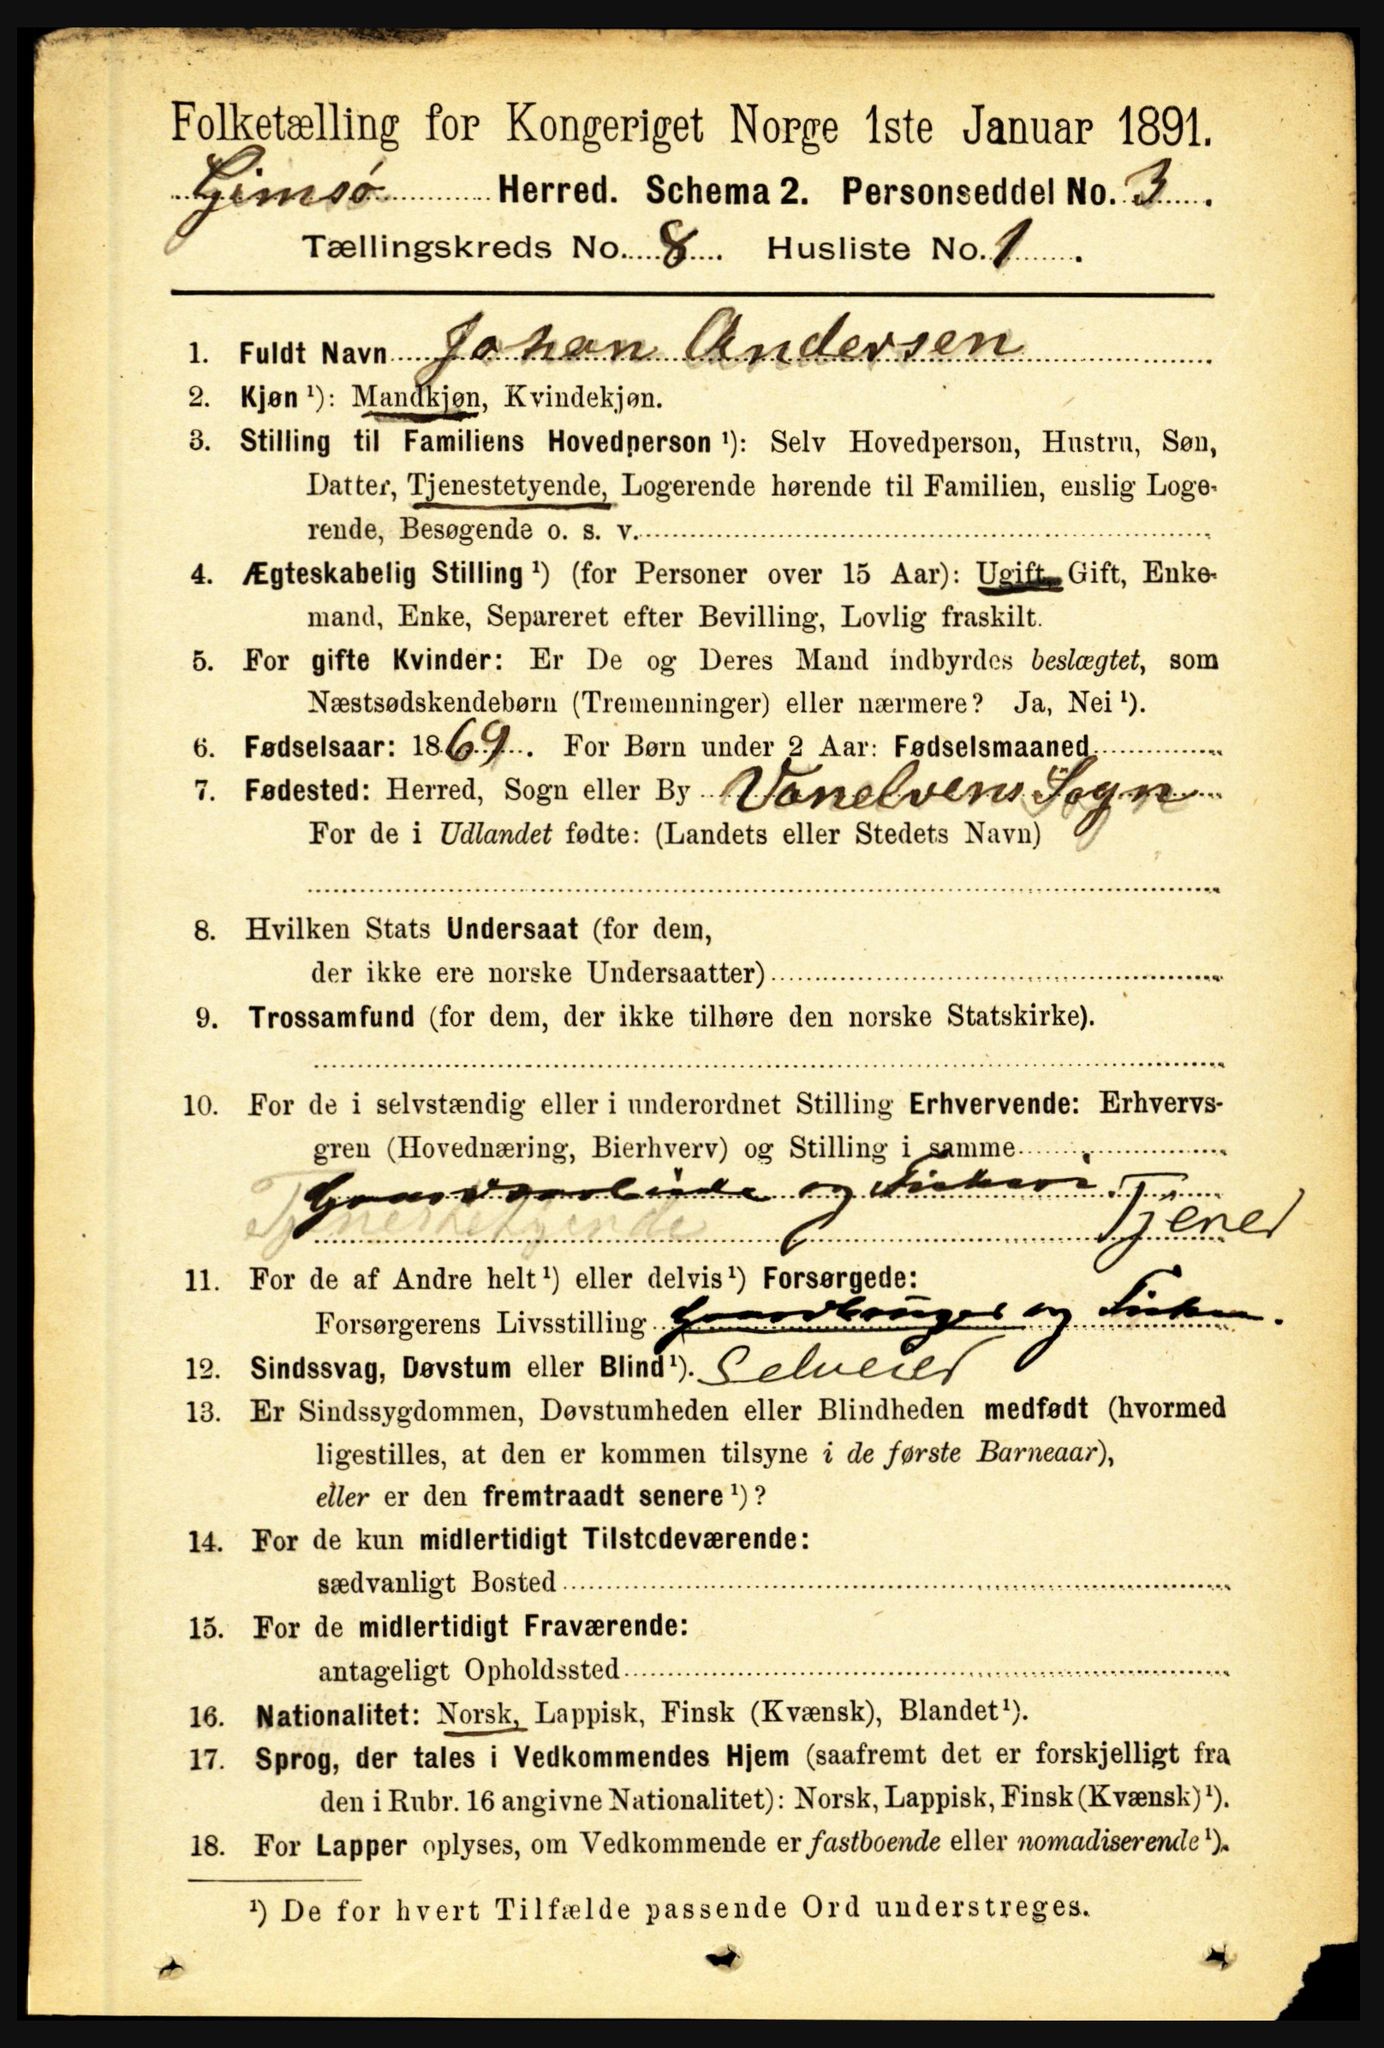 Folketælling for Kongeriget Norge 1ste Januar 1891.
Gimsø Herred. Schema 2. Personseddel No. 3.
Tællingskreds No. 8. Husliste No. 1.
1. Fuldt Navn Johan Andersen
2. Kjøn ¹): Mandkjøn, Kvindekjøn.
3. Stilling til Familiens Hovedperson ¹): Selv Hovedperson, Hustru, Søn,
Datter, Tjenestetyende, Logerende hørende til Familien, enslig Loge-
rende, Besøgende o. s. v.
4. Ægteskabelig Stilling ¹) (for Personer over 15 Aar): Ugift, Gift, Enke-
mand, Enke, Separeret efter Bevilling, Lovlig fraskilt.
5. For gifte Kvinder: Er De og Deres Mand indbyrdes beslægtet, som
Næstsødskendebørn (Tremenninger) eller nærmere? Ja, Nei ¹).
6. Fødselsaar: 1869. For Børn under 2 Aar: Fødselsmaaned
7. Fødested: Herred, Sogn eller By Vanelvens Sogn
For de i Udlandet fødte: (Landets eller Stedets Navn)
8. Hvilken Stats Undersaat (for dem,
der ikke ere norske Undersaatter)
9. Trossamfund (for dem, der ikke tilhøre den norske Statskirke).
10. For de i selvstændig eller i underordnet Stilling Erhvervende: Erhvervs-
gren (Hovednæring, Bierhverv) og Stilling i samme
og Fiskeri
Tjenestetyende Tjener
11. For de af Andre helt ¹) eller delvis ¹) Forsørgede:
Forsørgerens Livsstilling Gaardbruger og Fisker.
12. Sindssvag, Døvstum eller Blind ¹). Selveier
13. Er Sindssygdommen, Døvstumheden eller Blindheden medfødt (hvormed
ligestilles, at den er kommen tilsyne i de første Barneaar),
eller er den fremtraadt senere ¹)?
14. For de kun midlertidigt Tilstedeværende:
sædvanligt Bosted
15. For de midlertidigt Fraværende:
antageligt Opholdssted
16. Nationalitet: Norsk, Lappisk, Finsk (Kvænsk), Blandet ¹).
17. Sprog, der tales i Vedkommendes Hjem (saafremt det er forskjelligt fra
den i Rubr. 16 angivne Nationalitet): Norsk, Lappisk, Finsk (Kvænsk) ¹).
18. For Lapper oplyses, om Vedkommende er fastboende eller nomadiserende ¹).
¹) De for hvert Tilfælde passende Ord understreges.